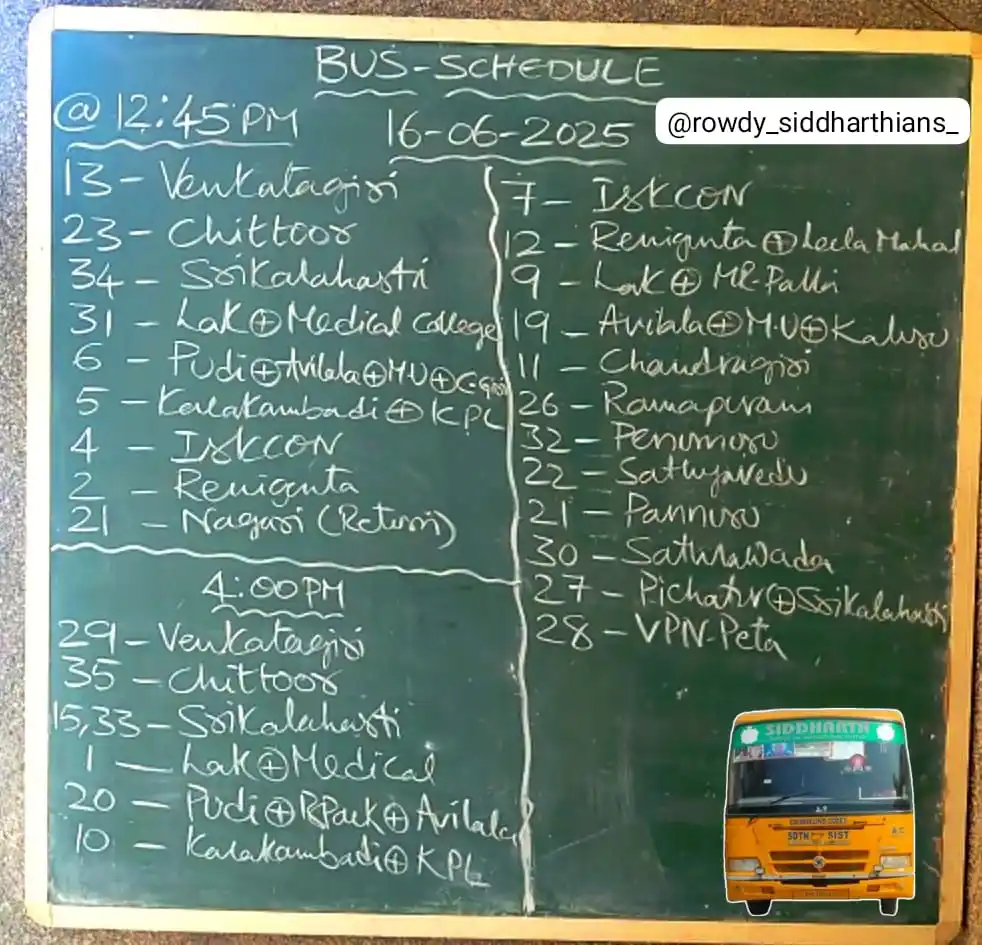 BUS-SCHEDULE
@ 12:45 PM
16-06-2025
@rowdy_siddharthians_
13 - Venkatagiri
23 - Chittoor
34 - Srikalahasti
31 - Lak ⊕ Medical College
6 - Pudi ⊕ Avilala ⊕ M.U ⊕ C.giri
5 - Karakambadi ⊕ KPL
4 - ISKCON
2 - Renigunta
21 - Nagari (Return)
4:00 PM
29 - Venkatagiri
35 - Chittoor
15,33 - Srikalahasti
1 - Lak ⊕ Medical
20 - Pudi ⊕ RPark ⊕ Avilala
10 - Karakambadi ⊕ KPL
7 - ISKCON
12 - Renigunta ⊕ Leela Mahal
9 - Lak ⊕ MR-Palli
19 - Avilala ⊕ M.U ⊕ Kaluru
11 - Chandragiri
26 - Ramapuram
32 - Penumuru
22 - Sathyavedu
21 - Pannuru
30 - Sathrawada
27 - Pichatur ⊕ Srikalahasti
28 - VPN-Peta
SIDDHARTH
SDTN SIST